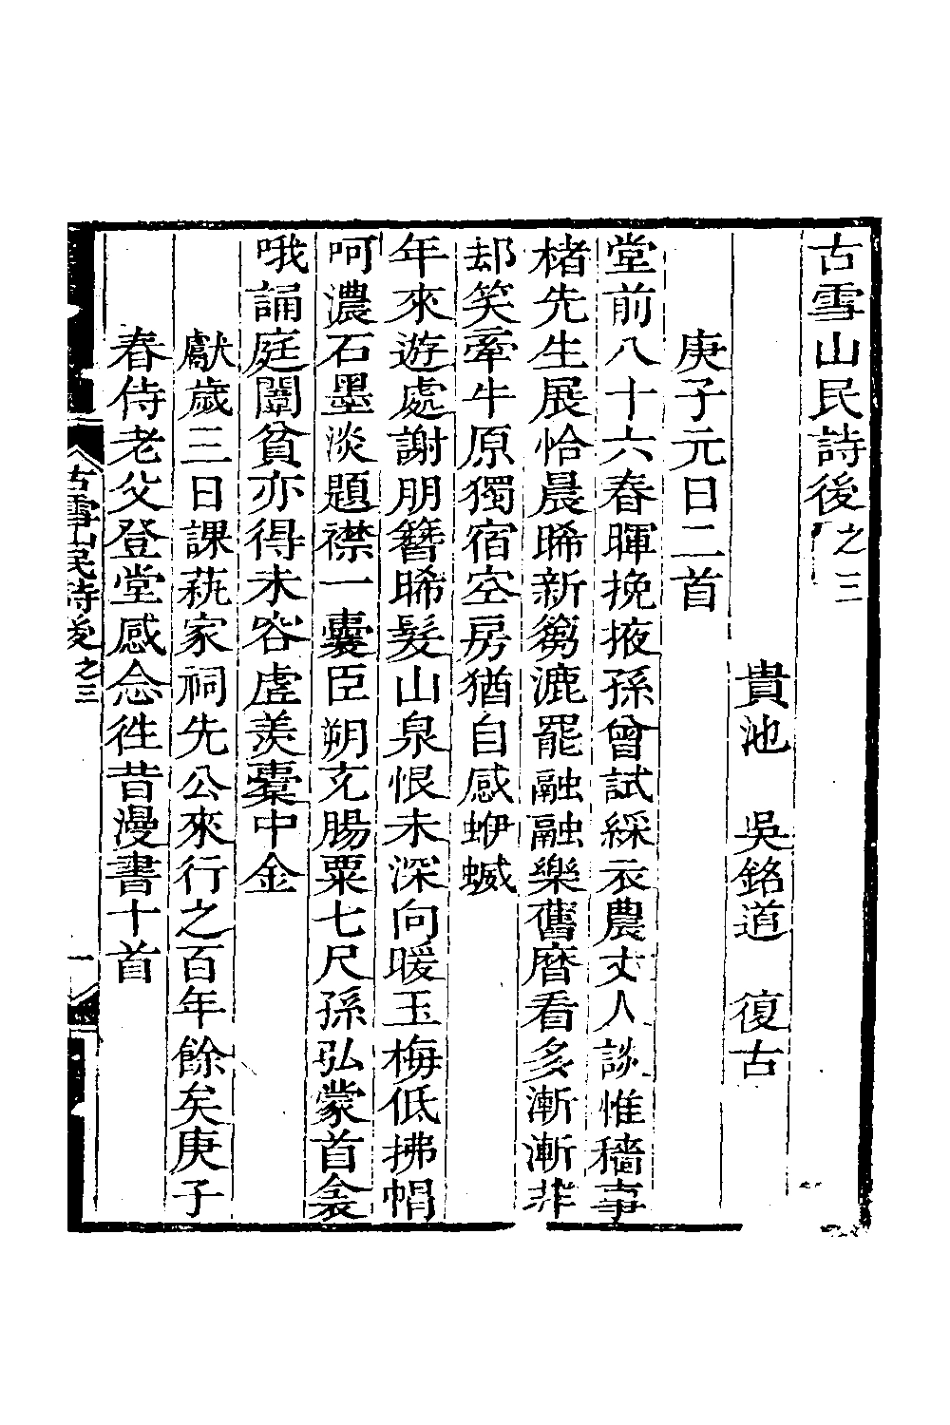 古雪山民詩後之三
貴池　吳銘道　復古
庚子元日二首
堂前八十六春暉挽掖孫曾試綵衣農丈人談惟穡事
楮先生展恰晨晞新篘漉罷融融樂舊曆看多漸漸非
却笑牽牛原獨宿空房猶自感蛜蝛
年來遊處謝朋簪晞髮山泉恨未深向暖玉梅低拂帽
呵濃石墨淡題襟一囊臣朔充腸粟七尺孫弘蒙首衾
哦誦庭闈貧亦得未容虛羨橐中金
獻歲三日課蓺家祠先公來行之百年餘矣庚子
春侍老父登堂感念徃昔漫書十首
古雪山民詩後之三
一